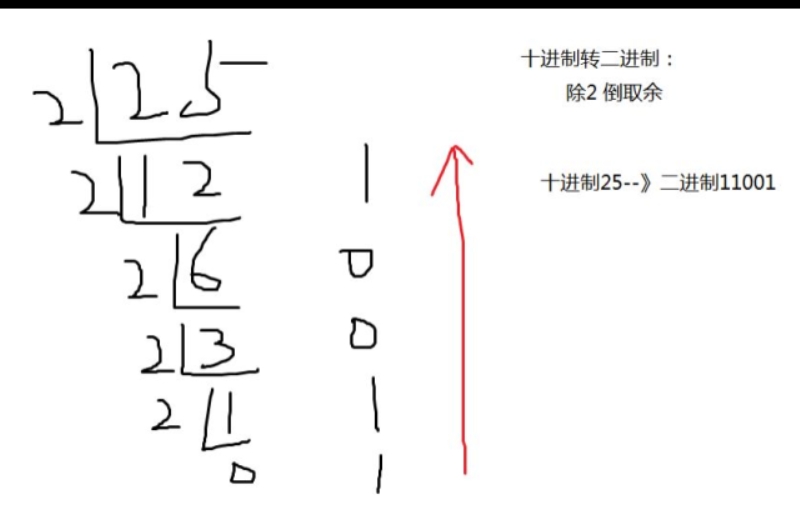 2 25
2 12 1
2 6 0
2 3 0
2 1 1
0 1
十进制转二进制：
除2 倒取余
十进制25--》二进制11001